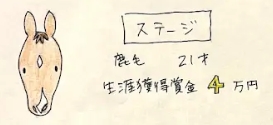 ステージ
鹿毛 21才
生涯獲得賞金 4 万円